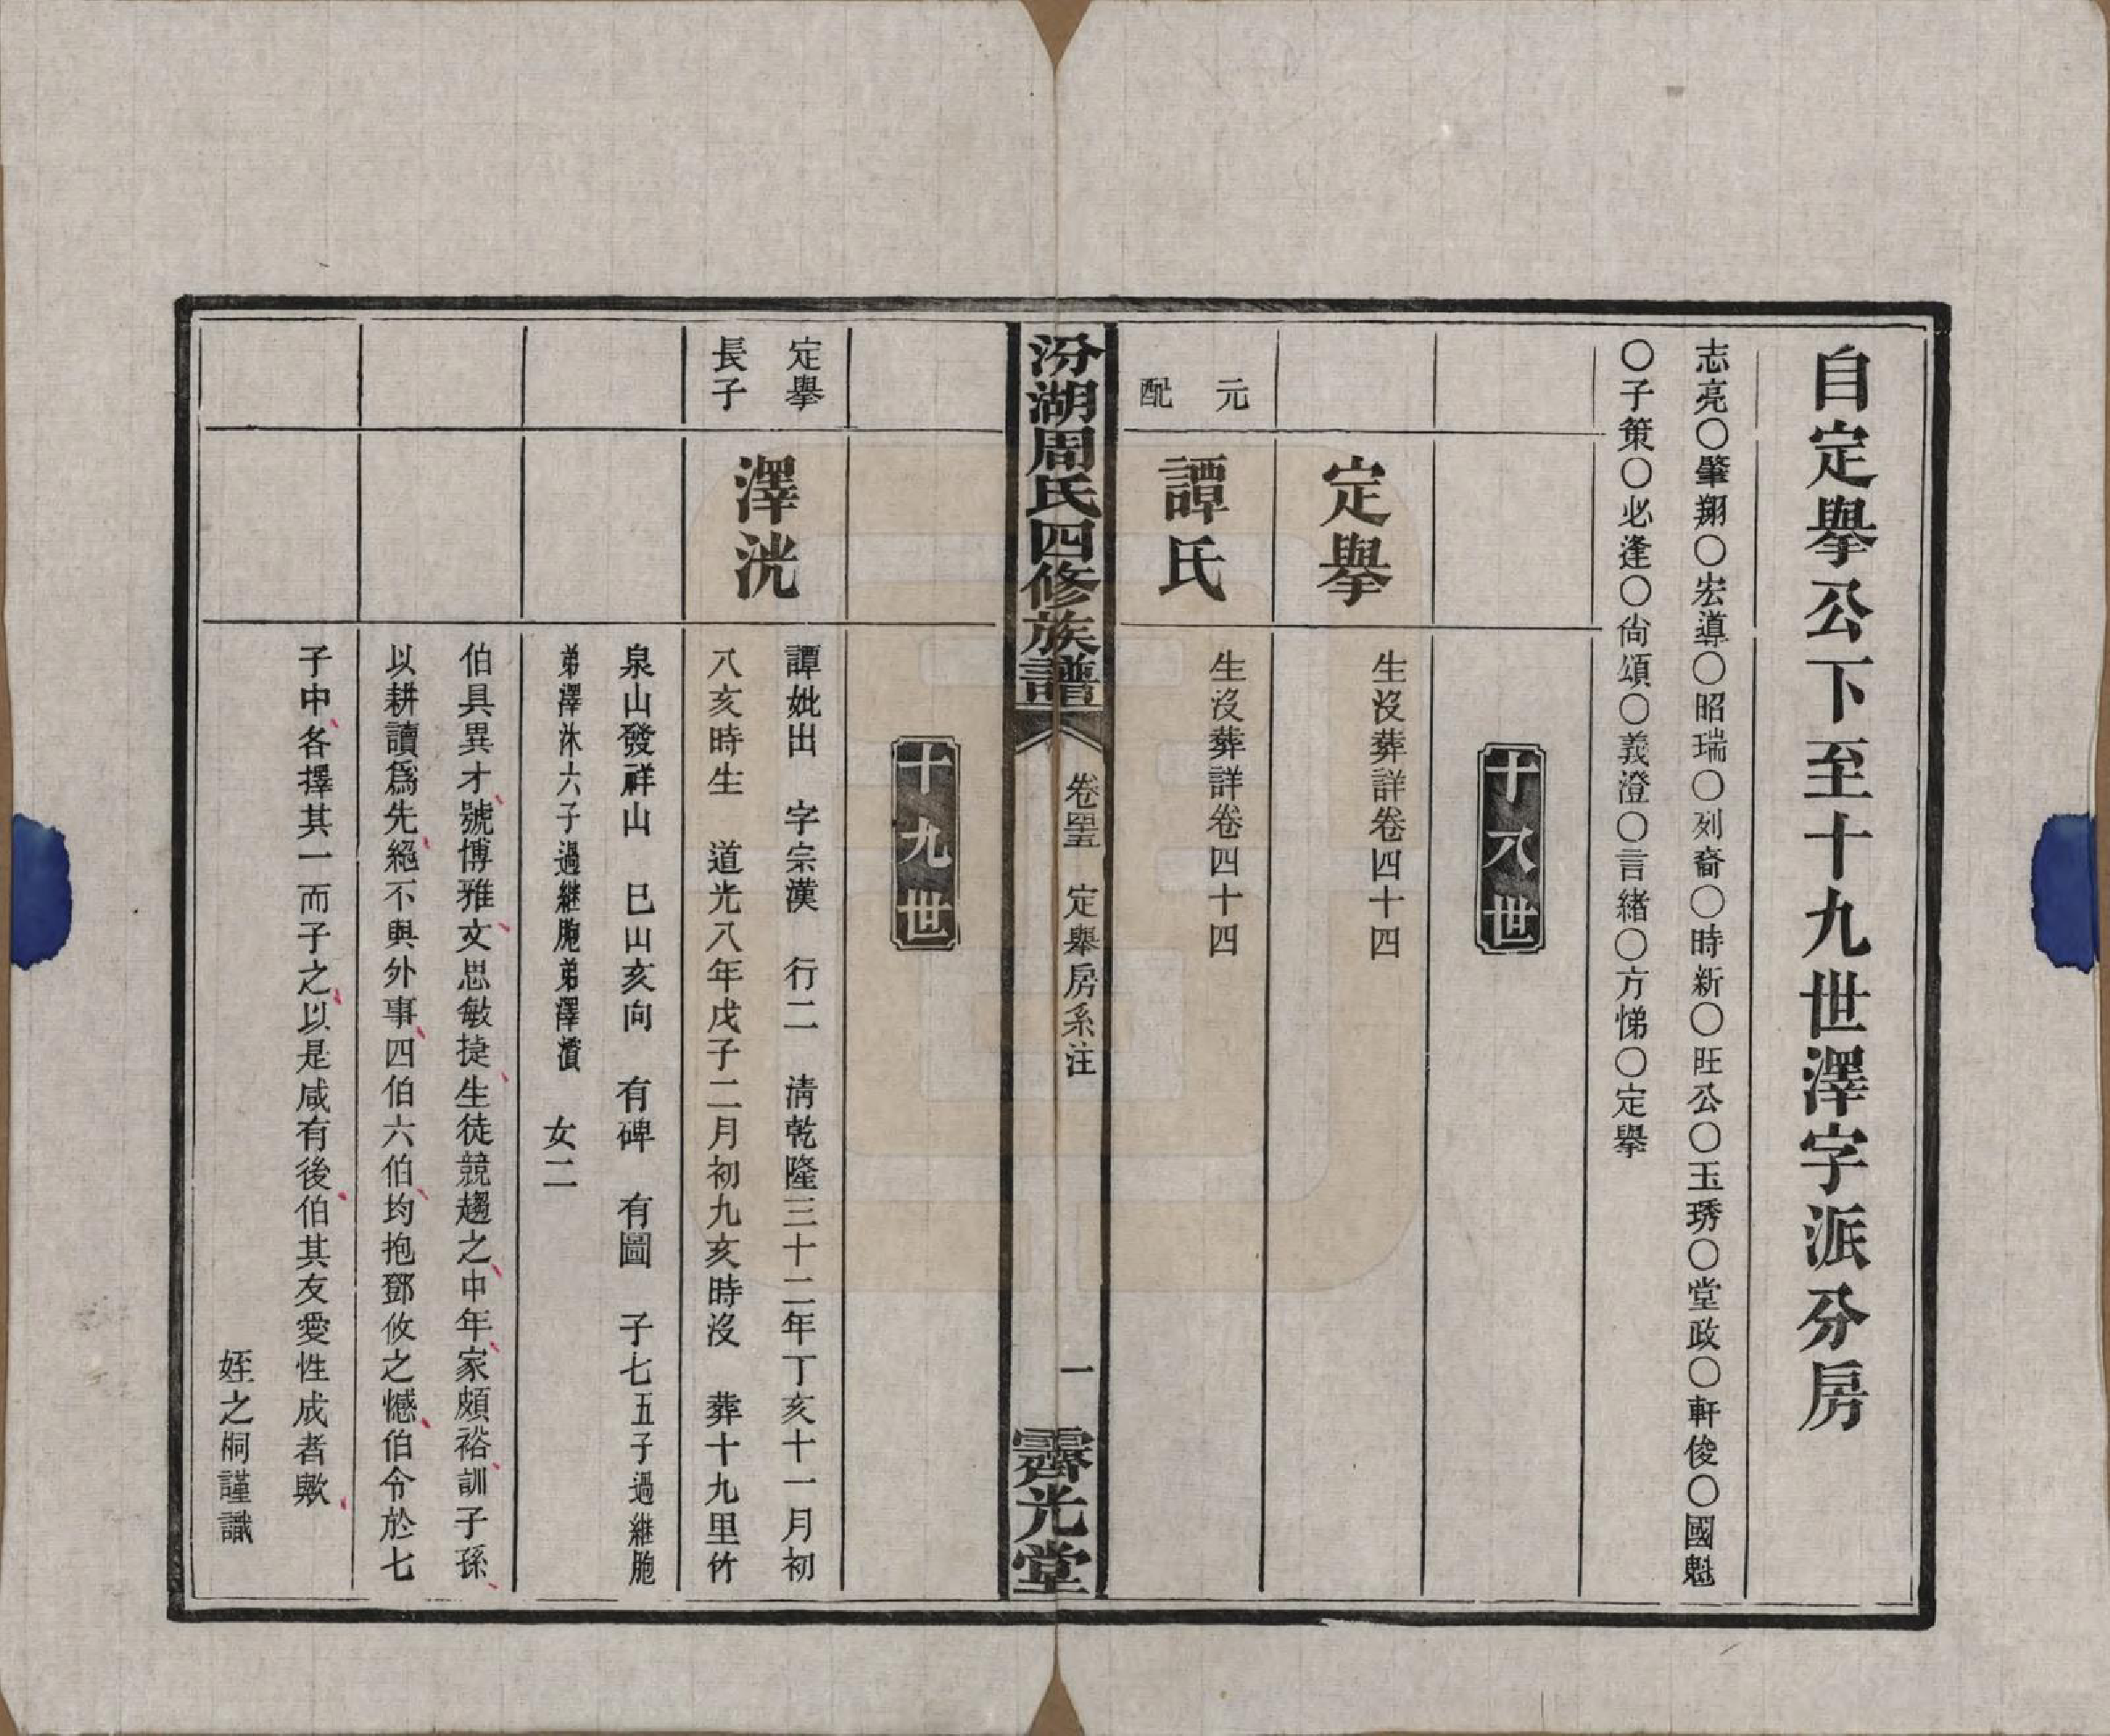 自定擧公下至十九世澤字派分房
志亮〇肇翔〇宏導〇昭瑞〇列裔〇時新〇旺公〇玉琇〇堂政〇軒俊〇國魁
〇子策〇必逢〇尙頌〇義澄〇言緒〇方悌〇定擧
十八世
定擧
生沒葬詳卷四十四
元
配
譚氏
生沒葬詳卷四十四
汾湖周氏四修族譜
卷四五
定擧房系注
一
霽光堂
十九世
定擧
長子
澤洸
譚妣出 字宗漢 行二 淸乾隆三十二年丁亥十一月初
八亥時生 道光八年戊子二月初九亥時沒 葬十九里竹
泉山發祥山 巳山亥向 有碑 有圖 子七五子過継胞
弟澤沐六子過継胞弟澤濆 女二
伯具異才號博雅文思敏捷生徒競趨之中年家頗裕訓子孫
以耕讀爲先絕不與外事四伯六伯均抱鄧攸之憾伯令於七
子中各擇其一而子之以是咸有後伯其友愛性成者歟
姪之桐謹識